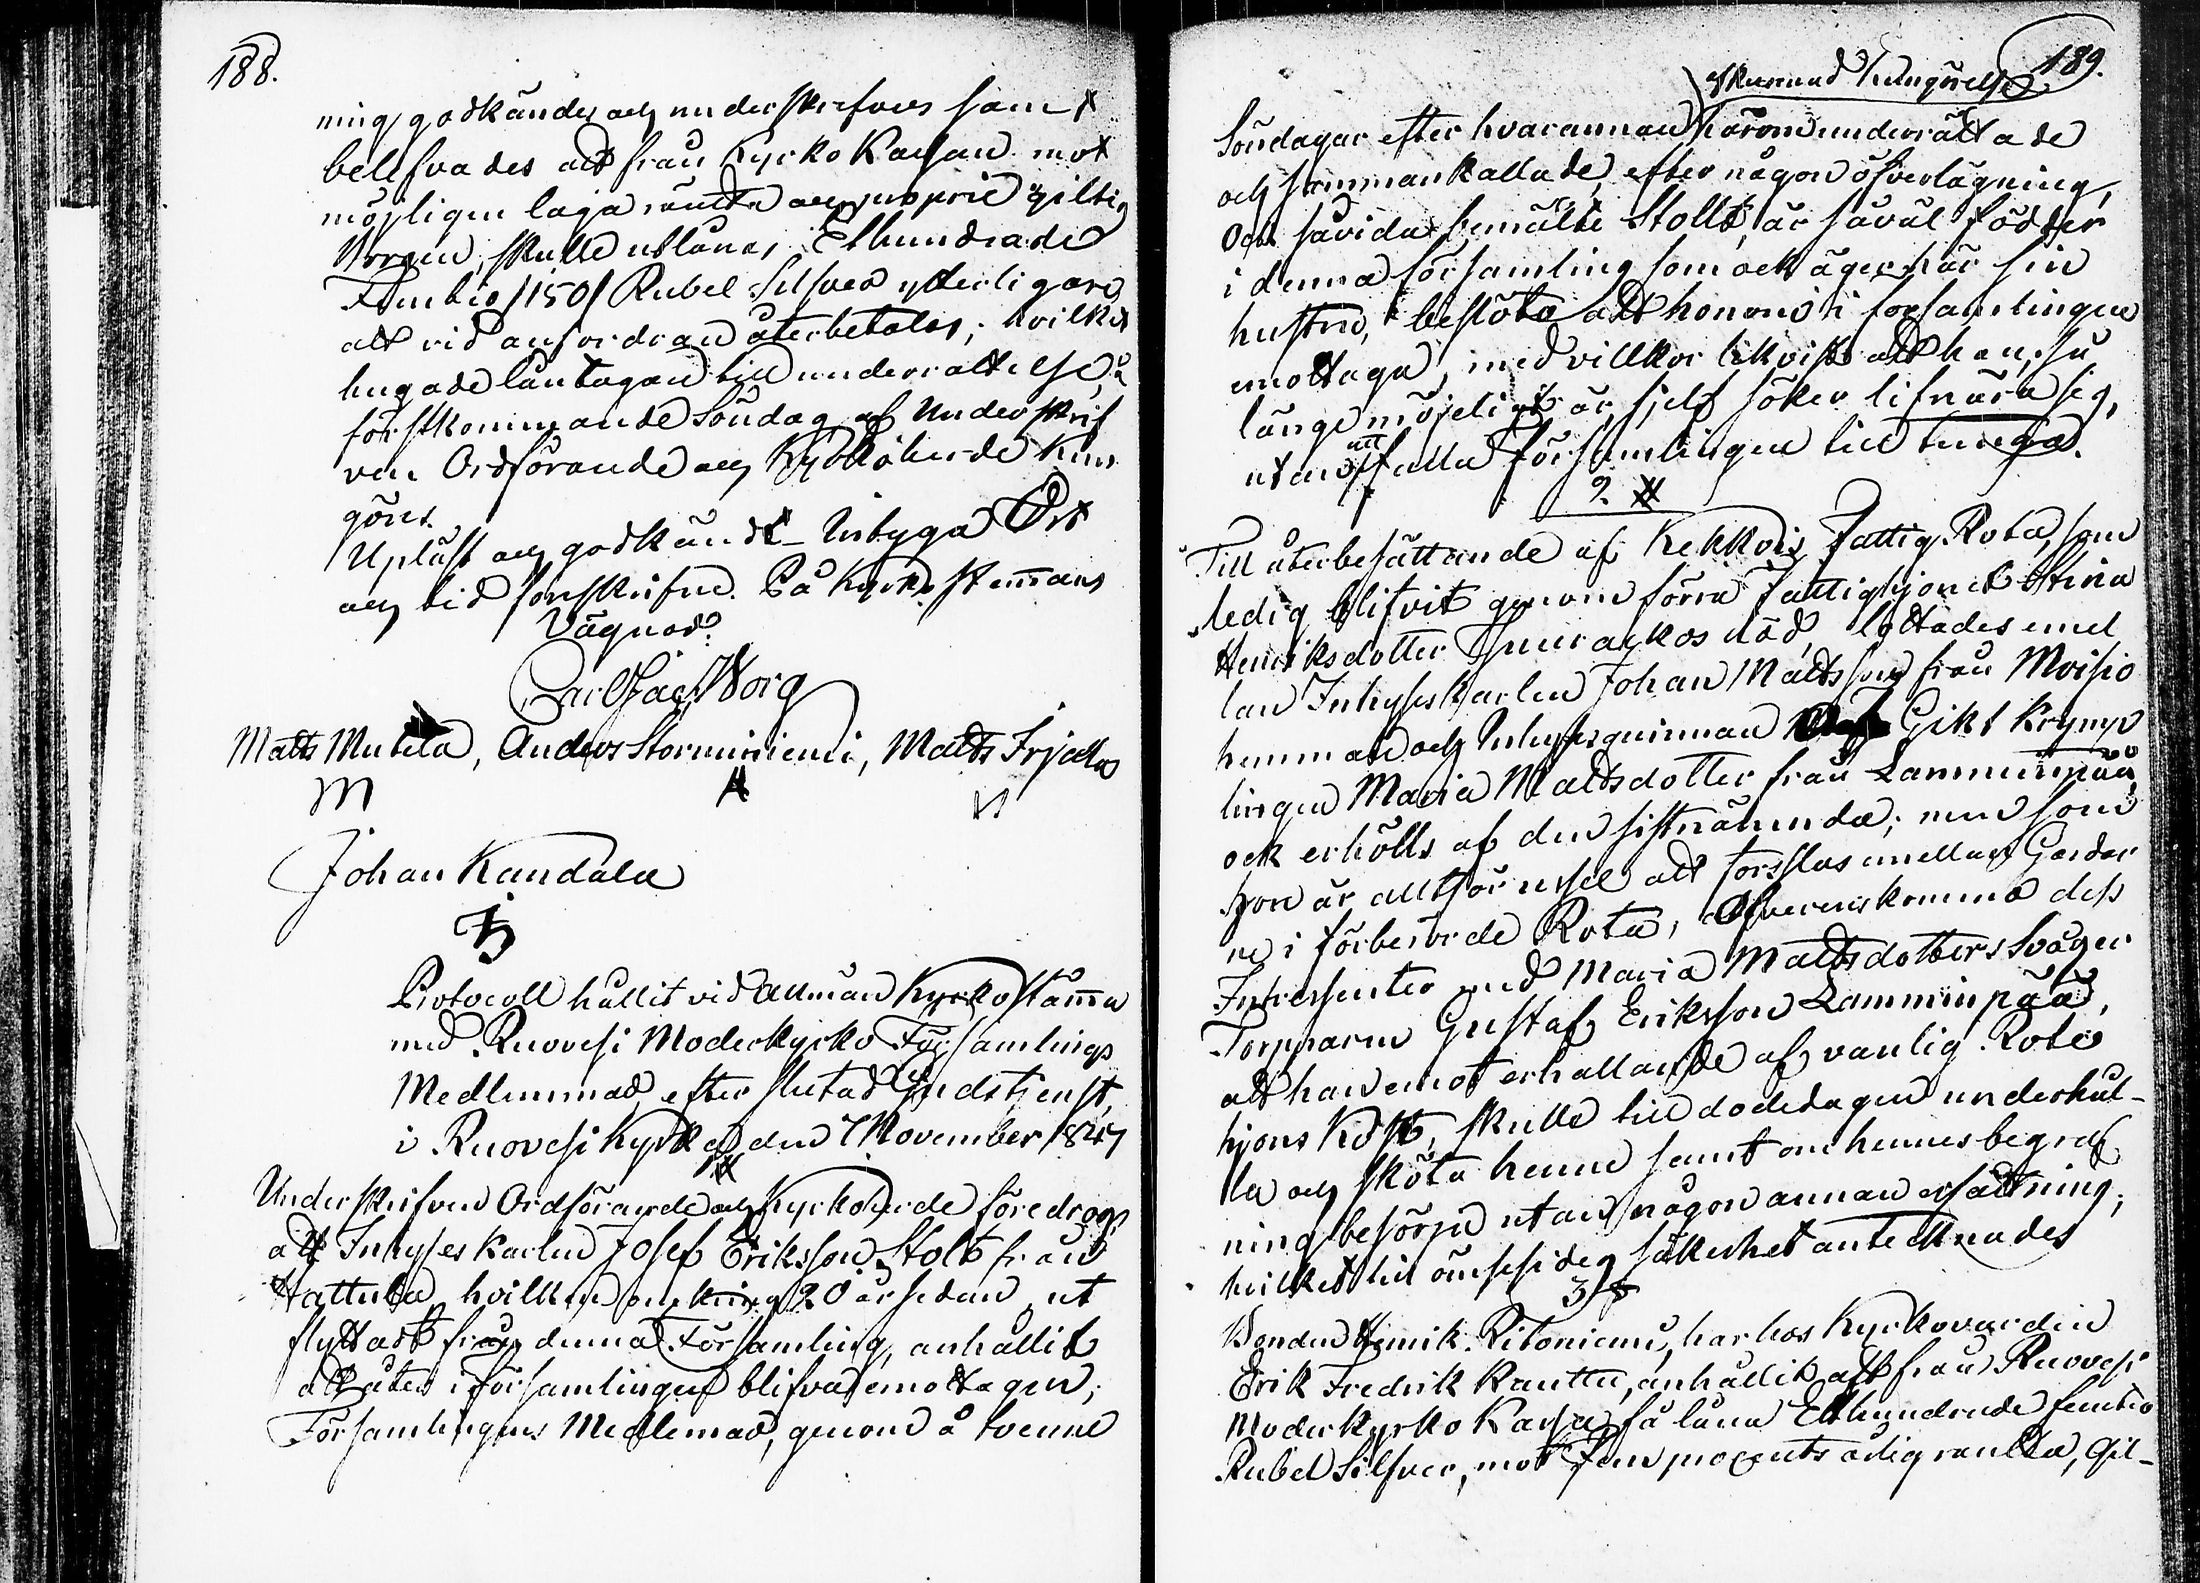 188.
ning, godkändes och underskrefves samt
belefvades att från Kyrko Kassan mot
möjligen laga ränta och proprie giltig
Borgen, skulle utlånas Etthundrade
Femtio /150/ Rubel Silfver ytterligare
att vid anfordran återbetalas; hvilket
hugade låntagare till underrättelse, å
förstkommande Söndag af Underskrif
ven Ordförande och Kyrkoherde kun
göres.
Upläst och godkändt Intyga Ort
och tid förskrifne. På Kyrkostämans
Vägnar
Carl Jac. Borg
Matts Mutila, Anders Storminiemi, Matts Frjalas
Johan Kandala
Protocoll hållit vid Allmän Kyrkostäma
med Ruovesi Moderkyrko Församlings
Medlemmar, efter slutad Gudstjenst,
i Ruovesi Kyrka den 7 November 1847
Underskrifven Ordförande och Kyrkoherde föredrog
att Inhyses Karlen Josef Eriksson Stolt från
Hattula, hvilken omkring 20 år sedan ut
flyttat från denna Församling, anhållit
att åter i församlingen blifva emottagen;
Församlingens Medlemar, genom å tvenne
189.
skeenad Kungörelse
Söndagar efter hvarannan härom underrättade
och sammankallade, efter någon öfverlägning,
Och såvida bemälte Stolt, är såväl födder
i denna församling som ock äger här sin
hustru, beslöto att honom i församlingen
emottaga, med villkor likvist att han, så
länge möjeligt är, sjelf söker lifnära sig,
utan att falla församlingen till tunga.
2 §
Till återbesättande af Kekkois Fattig Rota, som
ledig blifvit genom förra Fattighjonet Stina
Henriksdotter död, lottades emel
lan Inhyseskarlen Johan Mattsson från Moisio
hemman och Inhysesquinnan Gikt Krymp
lingen Maria Mattsdotter från Lamminpää,
ock erhölls af den sistnämnda; men som
hon är alltför ussel att forsslas emellan Gårdar
ne i förberörde Rota, Öfverenskommo dess
Intressenter med Maria Mattsdotters Svåger
Torpparen Gustaf Eriksson Lamminpää,
att han emot erhållande af vanlig Rote
hjons Kost, skulle till dödedagen underhål-
la och sköta henne samt om hennes begraf
ning besörja utan någon annan ersättning;
hvilket till ömsesidig säkerhet antecknades
3 §
Bonden Henrik Ritoniemi, har hos Kyrkovärden
Erik Fredrik Kauttu, anhållit att från Ruovesi
Moderkyrko Kassa få låna Etthundrade femtio
Rubel Silfver, mot Fem procents årlig ränta, gil-